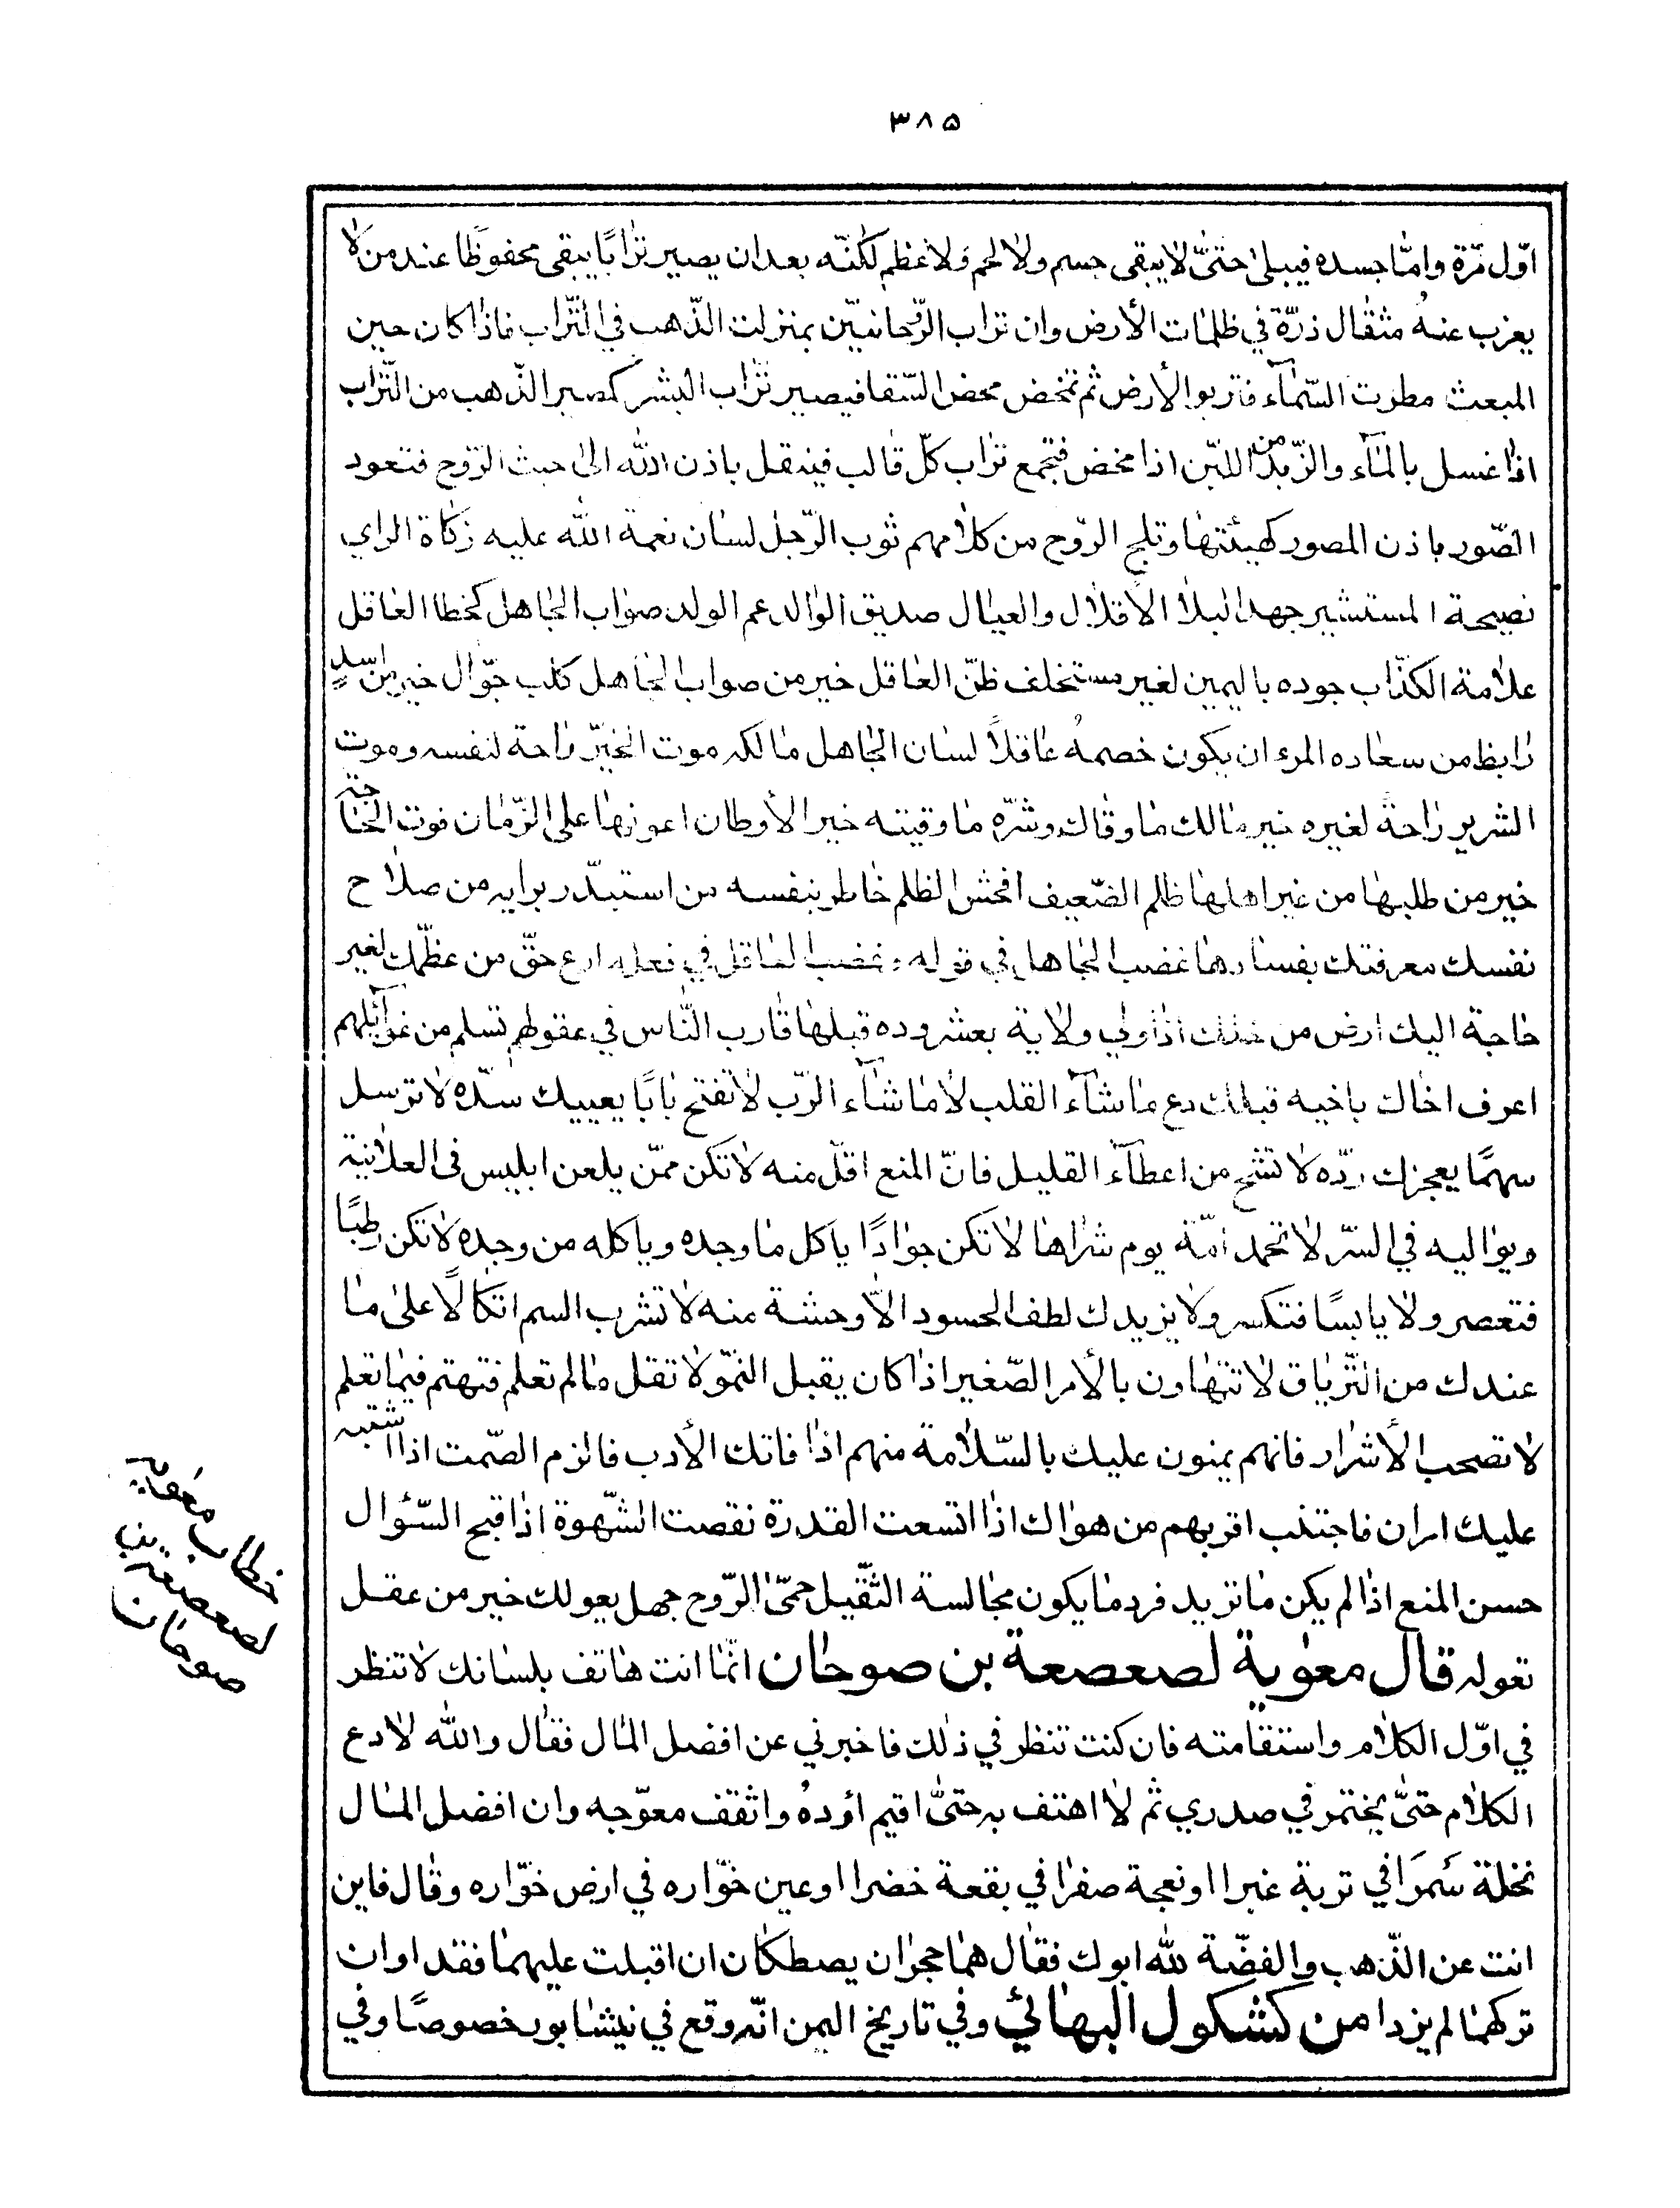 ٣٨٥
اوّل مرّة وامّا جسده فيبلى حتىّ لا يبقى جسم ولا لحم ولا عظم لكنّه بعد ان يصير ترابًا يبقى محفوظًا عند من لا
يعزب عنهُ مثقال ذرّة في ظلمات الأرض وان تراب الرّوحانيّين بمنزلت الذّهب في التّراب فاذا كان حين
المبعث مطرت السّمآء فتربوا الأرض ثم تمخض محض السّقا فيصير تراب البشر كمصير الذّهب من التّراب
اذا غسل بالمآء والزّبد من اللبّن اذا مخض فتجمع تراب كلّ قالب فينتقل باذن الله الى حيث الرّوح فتعود
الصّور باذن المصور كهيئتها وتلج الرّوح من كلامهم ثوب الرّجل لسان نعمة الله عليه زكاة الراي
نصيحة المستشير جهد البلا الاقلال والعيال صديق الوالد عم الولد صواب الجاهل كخطا العاقل
علامة الكذّاب جوده باليمين لغير مستحلف ظنّ العاقل خير من صواب الجاهل كلب جوّال خير من اسدٍ
رابظ من سعاده المرء ان يكون خصمهُ عاقلاً لسان الجاهل مالكه موت الخيّر راحة لنفسه وموت
الشرير راحة لغيره خير مالك ما وقاك وشرّه ما وقيته خير الأوطان اعونها على الزّمان فوت الحاجة
خير من طلبها من غير اهلها ظلم الضّعيف افحش الظلم خاطر بنفسه من استبدّ برايه من صلاح
نفسك معرفتك بفسادها غضب الجاهل في قوله وغضب العاقل في فعله ارع حقّ من عظّمك لغير
حاجة اليك ارض من خلك اذا ولي ولاية بعشر وده قبلها قارب النّاس في عقولهم تسلم من غوآئلهم
اعرف اخاك باخيه قبلك دع ما شآء القلب لأما شآء الرّب لا تفتح بابًا يعييك سدّه لا ترسل
سهمًا يعجزك ردّه لا تشح من اعطآء القليل فانّ المنع اقلّ منه لا تكن ممّن يلعن ابليس في العلانية
ويواليه في السّر لا تحمد امّة يوم شراها لا تكن جوادًا ياكل ما وجده وياكله من وجده لا تكن رطبًا
فتعصر ولا يابسًا فتكسر ولا يزيدك لطف الحسود الاّ وحشة منه لا تشرب السم اتكالاً على ما
عندك من التّرياق لا تتهاون بالأمر الصّغير اذا كان يقبل النموّ لا تقل ما لم تعلم فتهتم فيما تعلم
لا تصحب الأشرار فانهم يمنون عليك بالسّلامة منهم اذا فاتك الأدب فالزم الصّمت اذا اشتبه
عليك امران فاجتنب اقربهم من هواك اذا اتسعت القدرة نقصت الشّهوة اذا قبح السّئوال
حسن المنع اذا لم يكن ما تريد فرد ما يكون مجالسة الثّقيل حمىّ الرّوح جهل يعولك خير من عقل
تعوله قال معوية لصعصعة بن صوحان انمّا انت هاتف بلسانك لا تنظر
في اوّل الكلام واستقامته فان كنت تنظر في ذلك فاخبرني عن افضل المال فقال والله لادع
الكلام حتىّ يختمر في صدري ثم لا اهتف به حتىّ اقيم أودهُ واثقف معوّجه وان افضل المال
نخلة سَمرَا في تربة غبرا او نعجة صفرا في بقعة خضرا او عين خوّاره في ارض خوّاره وقال فاين
انت عن الذّهب والفضّة لله ابوك فقال هما حجران يصطكان ان اقبلت عليهما فقدا وان
تركهما لم يزدا من كشكول البهائي وفي تاريخ اليمن انّه وقع في نيشابور خصوصًا وفي
خطاب معوية
لصعصعة بن
صوحان